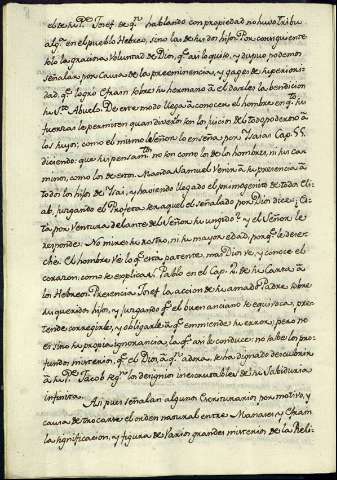 el de su P.e Josef de q.n hablando con propiedad no huvo Tribu
alg.a en el pueblo Hebreo, sino las de sus dos hijos. Por consiguiente
solo la graciosa Voluntad de Dios, q.e asi lo quiso, y dispuso podemos
señalar por Causa de la preeminencia, y gages de superiori-
dad q.e logró Efrain sobre su hermano al darles la bendicion
su S.to Abuelo. De este modo llega a conocer el hombre en q.to sus
fuerzas le permiten quan diversos son los juicios del todo poderoso a
los suyos; como el mismo Señor lo enseña por Isaias Cap. 55.
diciendo: que sus pensam.tos no son como los de los hombres, ni sus ca-
minos, como los de estos. Manda Samuel venir a su presencia a
todos los hijos de Isai, y haviendo llegado el primogenito de todos Eli-
ab, juzgando el Profeta ser aquel el señalado por Dios dice: Es-
ta por ventura delante del Señor su ungido? y el Señor le
responde: No mires su rostro, ni su mayor edad, porq.e le dese-
che. El hombre ve lo q.e esta patente, mas Dios ve, y conoce el
corazon, como se explica S. Pablo en el Cap. 2. de su Carta a
los Hebreos. Presencia Josef la accion de su amado Padre sobre
sus queridos hijos, y juzgando q.e el buen anciano se equivoca, pre-
tende corregirle, y obligarle a q.e enmiende su error; pero no
es sino su propia ignorancia, la q.e asi lo conduce: no sabe los pro-
fundos misterios q.e el Dios, a q.n adora, se ha dignado descubrir
a su P.e Jacob seg.n los designios inexcrutables de su Sabiduria
infinita.
Asi pues señalan algunos Escriturarios por motivo, y
causa de trocarse el orden natural entre Manases y Efrain
la significacion, y figura de varios grandes misterios de la Reli-